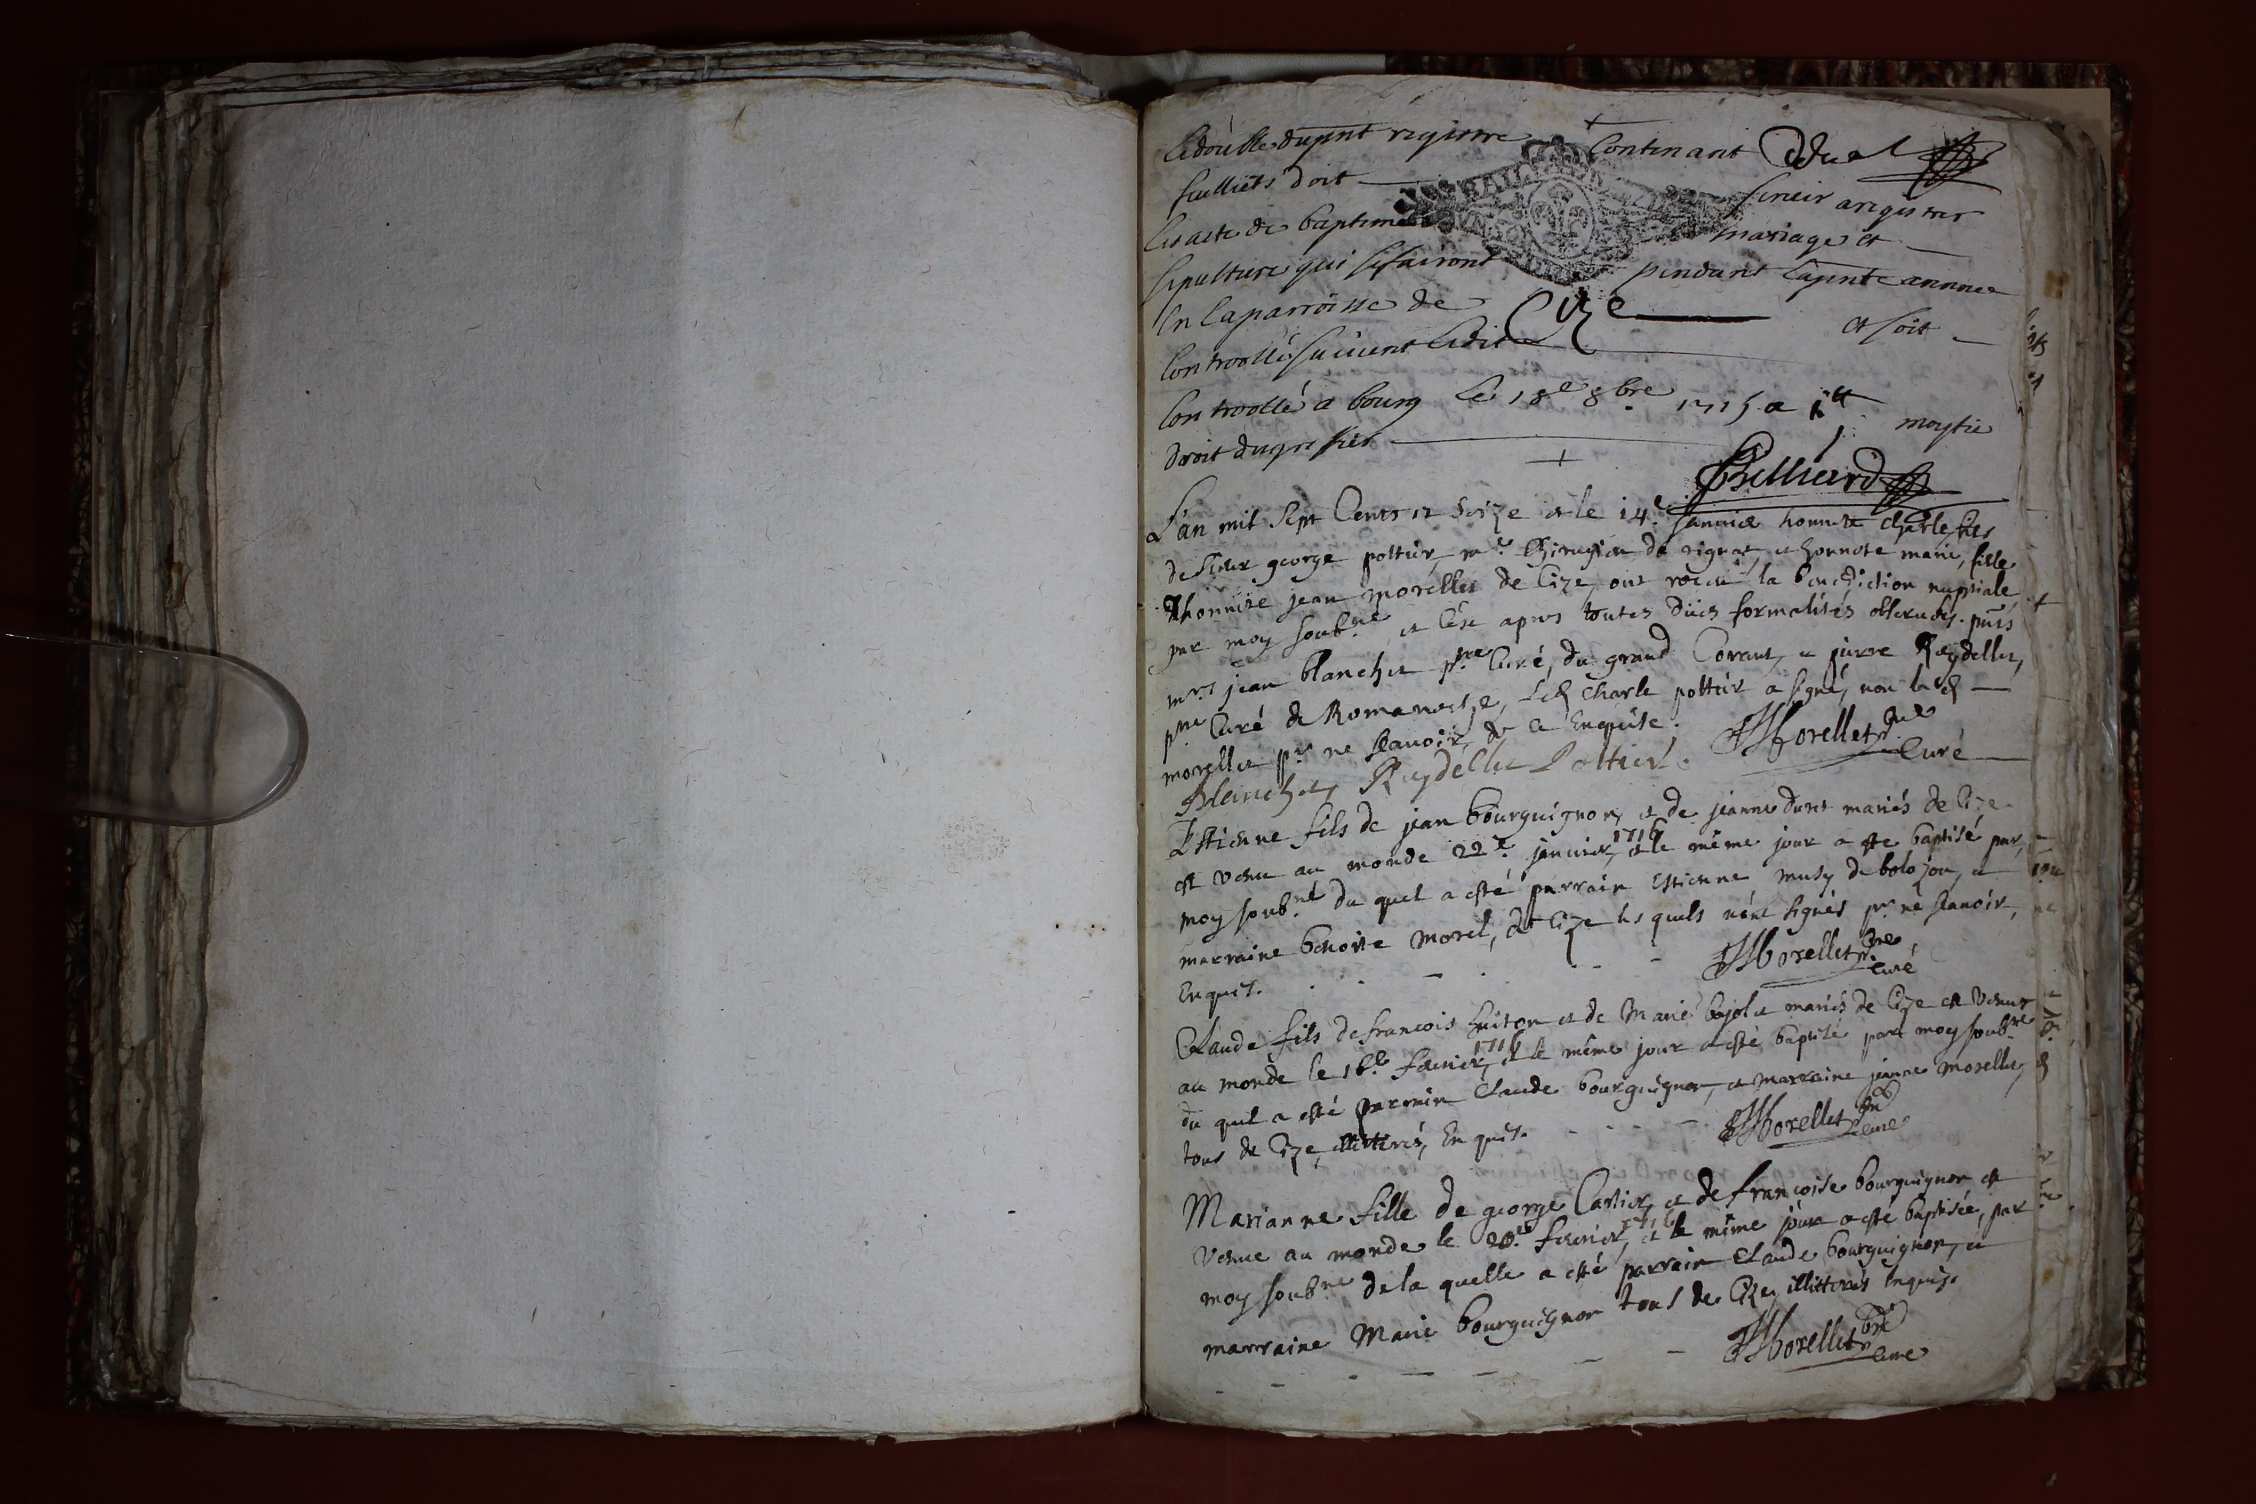 Le double du pnt registre Contenant deux
feulliets doit servir a registrer
les acte de baptemes mariage et
sepulture qui se fairont pendant la pnte annnee
en la parroisse de Cize et soit
Controollé suivent Ledit
Controollé a bourg Le 18e 8bre 1715 a moytie
droit du greffier
Billiard
L'an mil sept Cents et seize et le 14e janvier honnete charle fils
de sieur george pottier, me Chirugien de rignat, et honnete marie, fille
d'honnete jean morellet de Cize, ont recu la benediction nuptiale
par moy soubne et cese apres toutes dües formalités observées. pnts
mrs jean blanchet ptre Curé, du grand Corent, et pierre Reydellet,
ptre Curé de Romaneche, led charle pottier a signé, non lad
morellet pr ne scavoir de ce enquise. JMorellet ptre
Blanchet Reydellet Pottier Curé
Estienne fils de jean bourguignon, et de jeanne mariés de Cize
est venu au monde 22e janvier, 1716 et le même jour a esté baptisé par
moy soubne du quel a esté parrain Estienne musy de bolozon, et
marraine benoite morel, de Cize les quels n'ént signés pr ne scavoir,
Enquis. JMorellet ptre
Curé
Claude fils de francois et de Marie mariés de Cize est venu
au monde le 16e fevrier, 1716 et le même jour a esté baptisé par moy soubne
du quel a esté parrain Claude bourguignon, et marraine jeanne morellet,
tous de Cize, illitterés, Enquis. JMorellet ptre
Curé
Marianne fille de george Cartier, et de francoise bourguignon est
venue au monde le 20e fevrier, 1716 et le même jour a esté baptisée, par
moy soubne de la quelle a esté parrain Claude bourguignon, et
marraine Marie bourguignon tous de Cize, illitterés Enquis.
JMorellet ptre
Curé